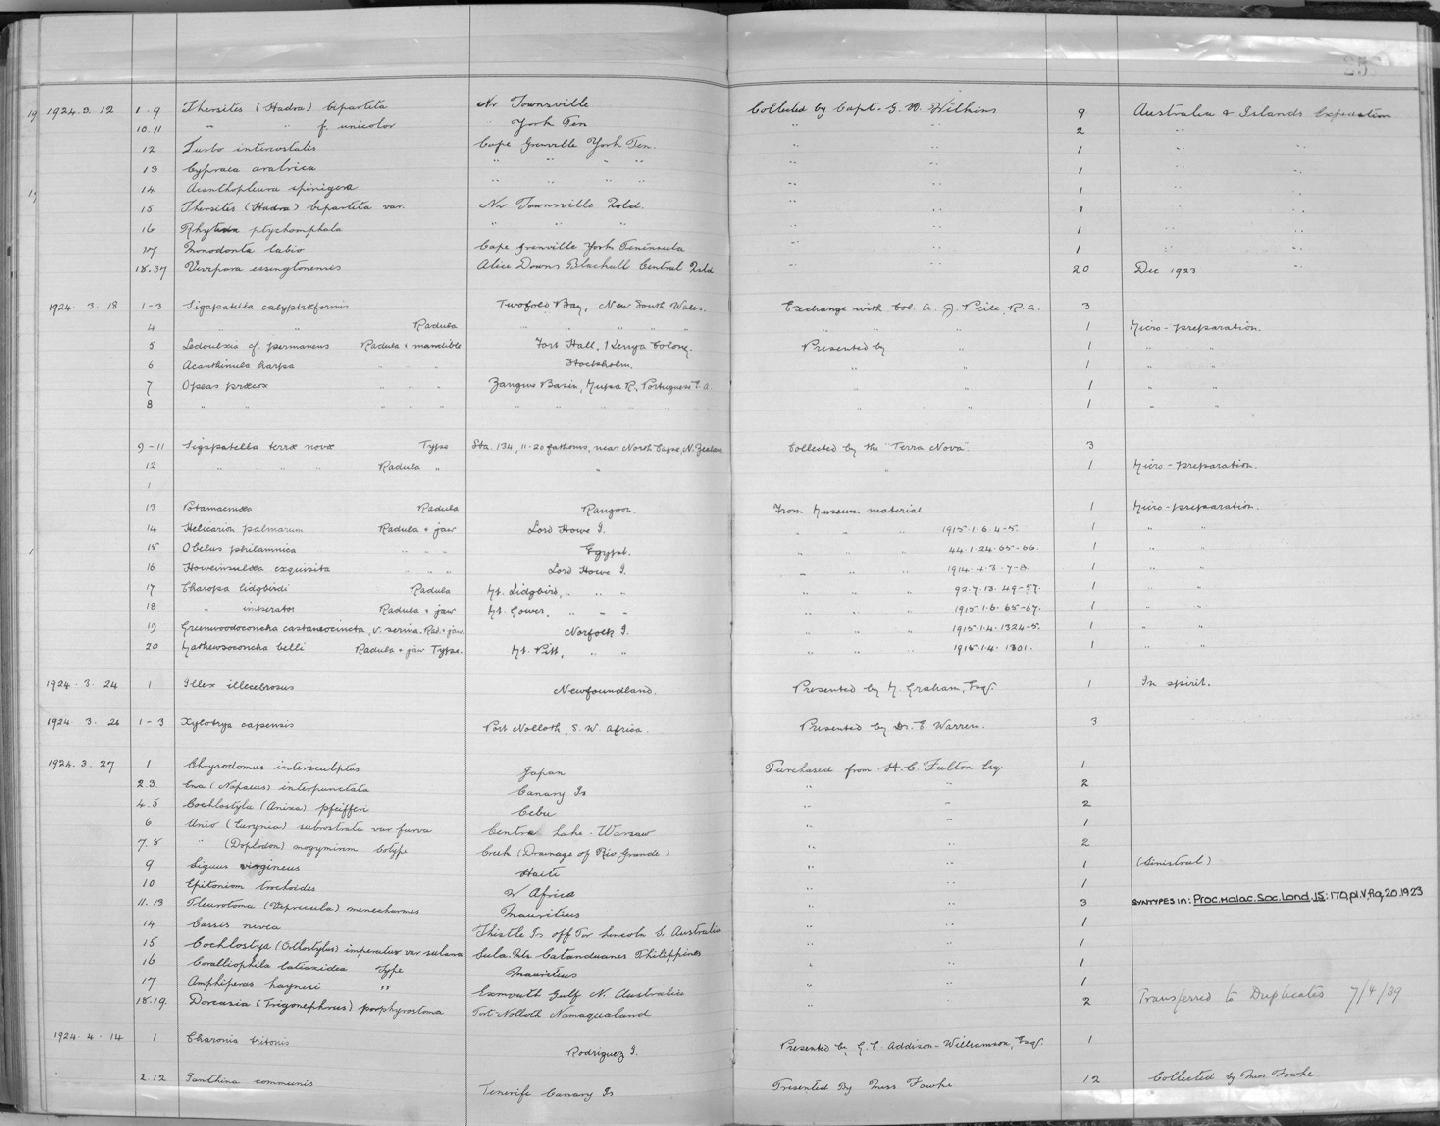 1924.3.12 1-9 Thersites (Hadra) bipartita Nr Townsville Collected by Capt. G. H. Wilkins 9 Australia & Islands Expedition
10.11 " " f. unicolor York Pen " " 2 " "
12 Turbo intercostalis Cape Grenville York Pen. " " 1 " "
13 Cypraea arabica " " " " " " 1 " "
14 Acanthopleura spinigera " " " " " " 1 " "
15 Thersites (Hadra) bipartita var. Nr Townsville Qld. " " 1 " "
16 Rhytida ptychomphala " " " " " 1 " "
17 Monodonta labio Cape Grenville York Peninsula " " 1 " "
18.37 Vivipara essingtonensis Alice Downs Blackall Central Qsld " " 20 Dec 1923 "
1924.3.18 1-3 Sigapatella calyptraeformis Twofold Bay, New South Wales. Exchange with Col. A. J. Peile, R.A. 3
4 " " Radula " " " " " " " " 1 Micro-preparation.
5 Ledoulxia cf. permanens Radula & mandible Fort Hall, Kenya Colony. Presented by " 1 " "
6 Acanthinula harpa " " " Stockholm. " " 1 " "
7 Opeas præcox " " " Zangue Basin, Mupa R. Portuguese E.A. " " 1 " "
8 " " " " " " " " " " " " 1 " "
9-11 Sigapatella terræ novæ Type Sta. 134, 11-20 fathoms, near North Cape, N. Zealand Collected by the "Terra Nova". 3
12 " " " Radula " " " 1 Micro-preparation.
1
13 Potamacmæa Radula Rangoon. From Museum material 1 Micro-preparation.
14 Helicarion palmarum Radula + jaw Lord Howe I. " " " 1915.1.6.4-5. 1 " "
15 Obelus philamnica " " " Egypt. " " " 44.1.24.65-66. 1 " "
16 Howeinsulæa exquisita " " " Lord Howe I. " " " 1914.4.3.7-8. 1 " "
17 Charopa lidgbirdi Radula Mt. Lidgbird, " " " " " " 92.7.13.49-57. 1 " "
18 " imperator Radula + jaw Mt. Gower, " " " " " " 1915.1.6.65-67. 1 " "
19 Greenwoodoconcha castaneocincta, v. Rad. + jaw. Norfolk I. " " " 1915.1.4.1324-5. 1 " "
20 Mathewsoconcha belli Radula + jaw Type. Mt. Pitt, " " " " " 1915.1.4.1301. 1 " "
1924.3.24 1 Illex illecebrosus Newfoundland. Presented by M. Graham, Esq. 1 In spirit.
1924.3.26 1-3 Xylotrya capensis Port Nolloth, S.W. Africa. Presented by Dr. E. Warren. 3
1924.3.27 1 Chrysodomus intersculptus Japan Purchased from H. C. Fulton Esq. 1
2.3 Ena (Napaeus) interpunctata Canary Is " " 2
4.5 Cochlostyla (Anixa) pfeifferi Cebu " " 2
6 Unio (Eurynia) subrostrata var furva Centre Lake. Warsaw " " 1
7.8 " (Doplodon) Cotype Creek (Drainage of Rio Grande) " " 2
9 Liguus virgineus Haiti " " 1 (Sinistral)
10 Epitonium trochoides W Africa " " 1
11.13 Pleurotoma (Veprecula) Mauritius " " 3 SYNTYPES IN: Proc. Malac. Soc. Lond, 15: 170, pl. V, fig, 20. 1923
14 Cassis nivea Thistle Is off Por Lincoln S. Australia " " 1
15 Cochlostya (Orthostylus) imperator var Sula. Pte Catanduanes Philippines " " 1
16 Coralliophila latiaxidea Type Mauritius " " 1
17 Amphiperas hayneri " Exmouth Gulf N. Australia " " 1
18.19. Dorcasia (Trigonephrus) porphyrostoma Port Nolloth Namaqualand " " 2 Transferred to Duplicates 7/4/39
1924.4.14 1 Charonia tritonis Rodriguez I. Presented by G. C. Addison-Williamson, Esq. 1
2.12 Janthina communis Tenerife Canary Is Presented By Miss Fowke 12 Collected by Miss Fowke